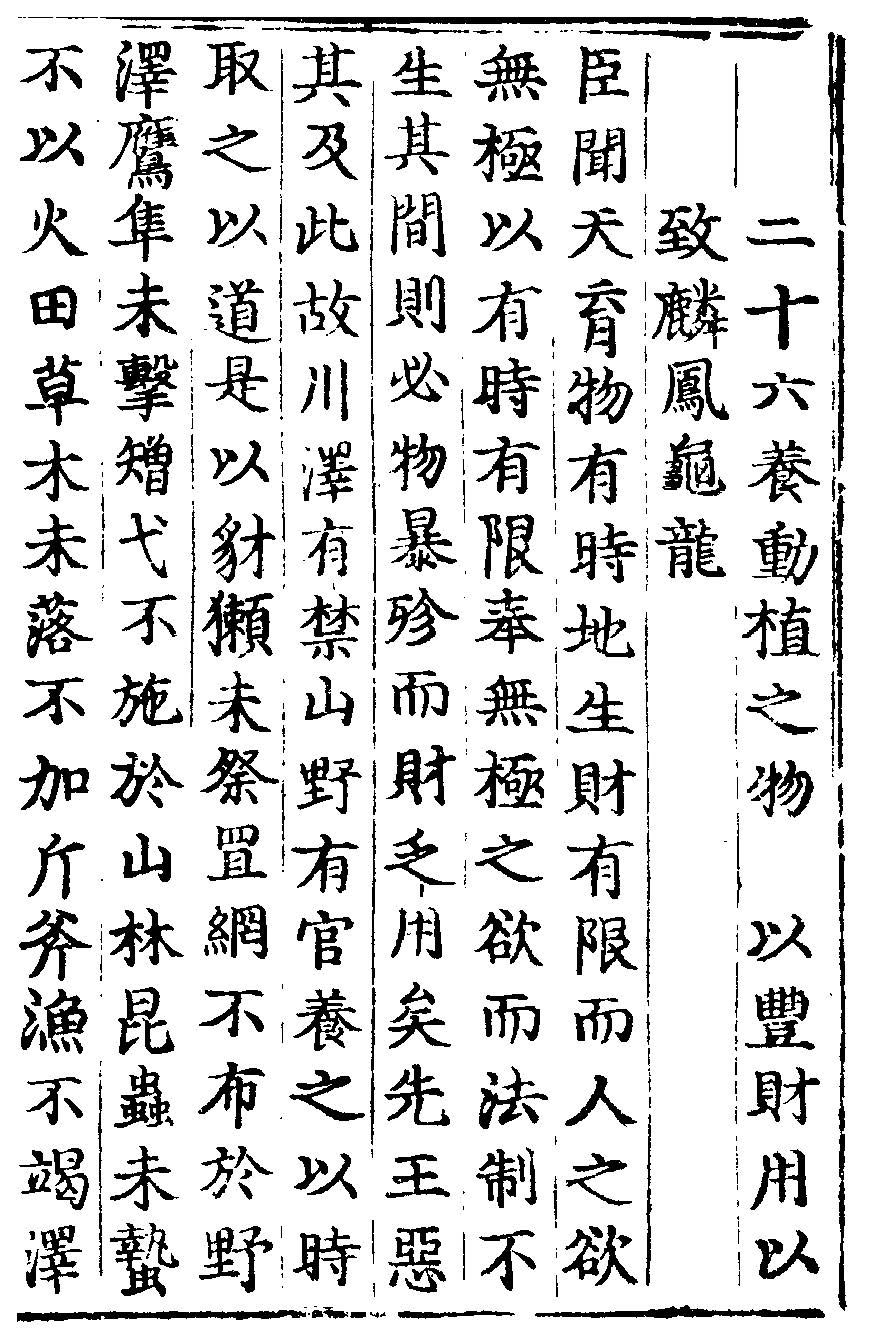 二十六養動植之物　以豐財用以
致麟鳳龜龍
臣聞天育物有時地生財有限而人之欲
無極以有時有限奉無極之欲而法制不
生其間則必物暴殄而財乏用矣先王惡
其及此故川澤有禁山野有官養之以時
取之以道是以豺獺未祭罝網不布於野
澤鷹隼未擊矰弋不施於山林昆蟲未蟄
不以火田草木未落不加斤斧漁不竭澤